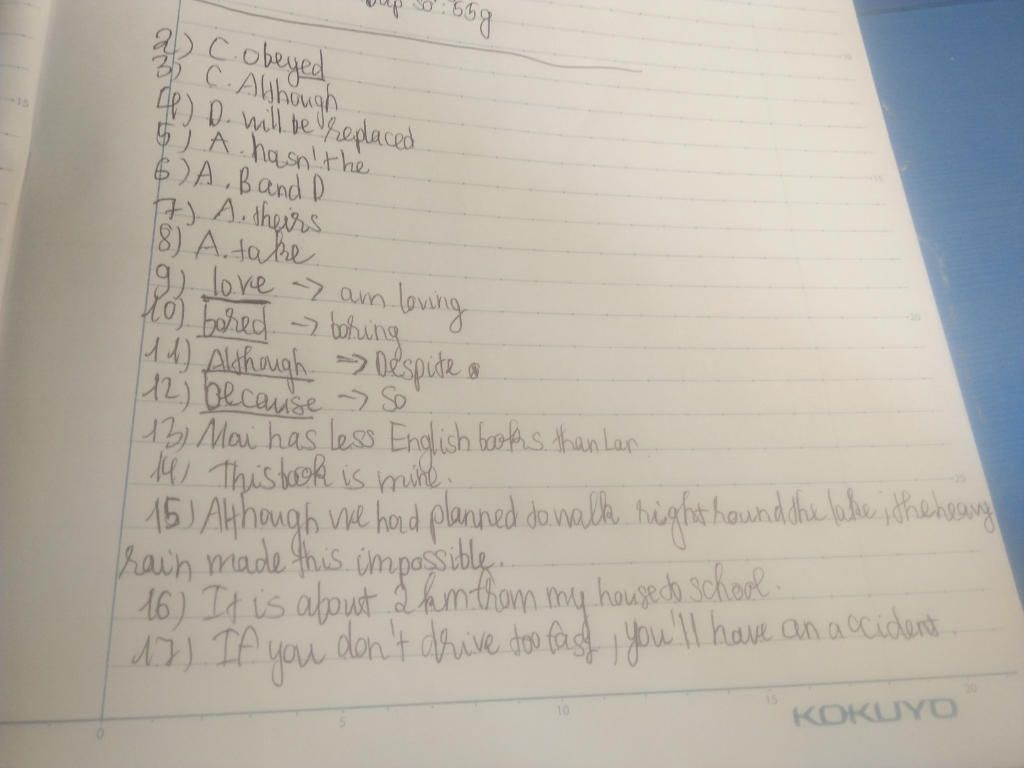 số: 55g
2) C. Obeyed
3) C. Although
4) D. will be replaced
5) A. hasn't he
6) A. B and D
7) A. theirs
8) A. take
9) love -> am loving
10) bored -> boring
11) Although => Despite
12) because -> so
13) Mai has less English books than Lan
14) This book is mine.
15) Although we had planned to walk right round the lake, the heavy
rain made this impossible.
16) It is about 2 km from my house to school.
17) If you don't drive too fast, you'll have an accident.
0 5 10 15 20
15
15
20
25
KOKUYO